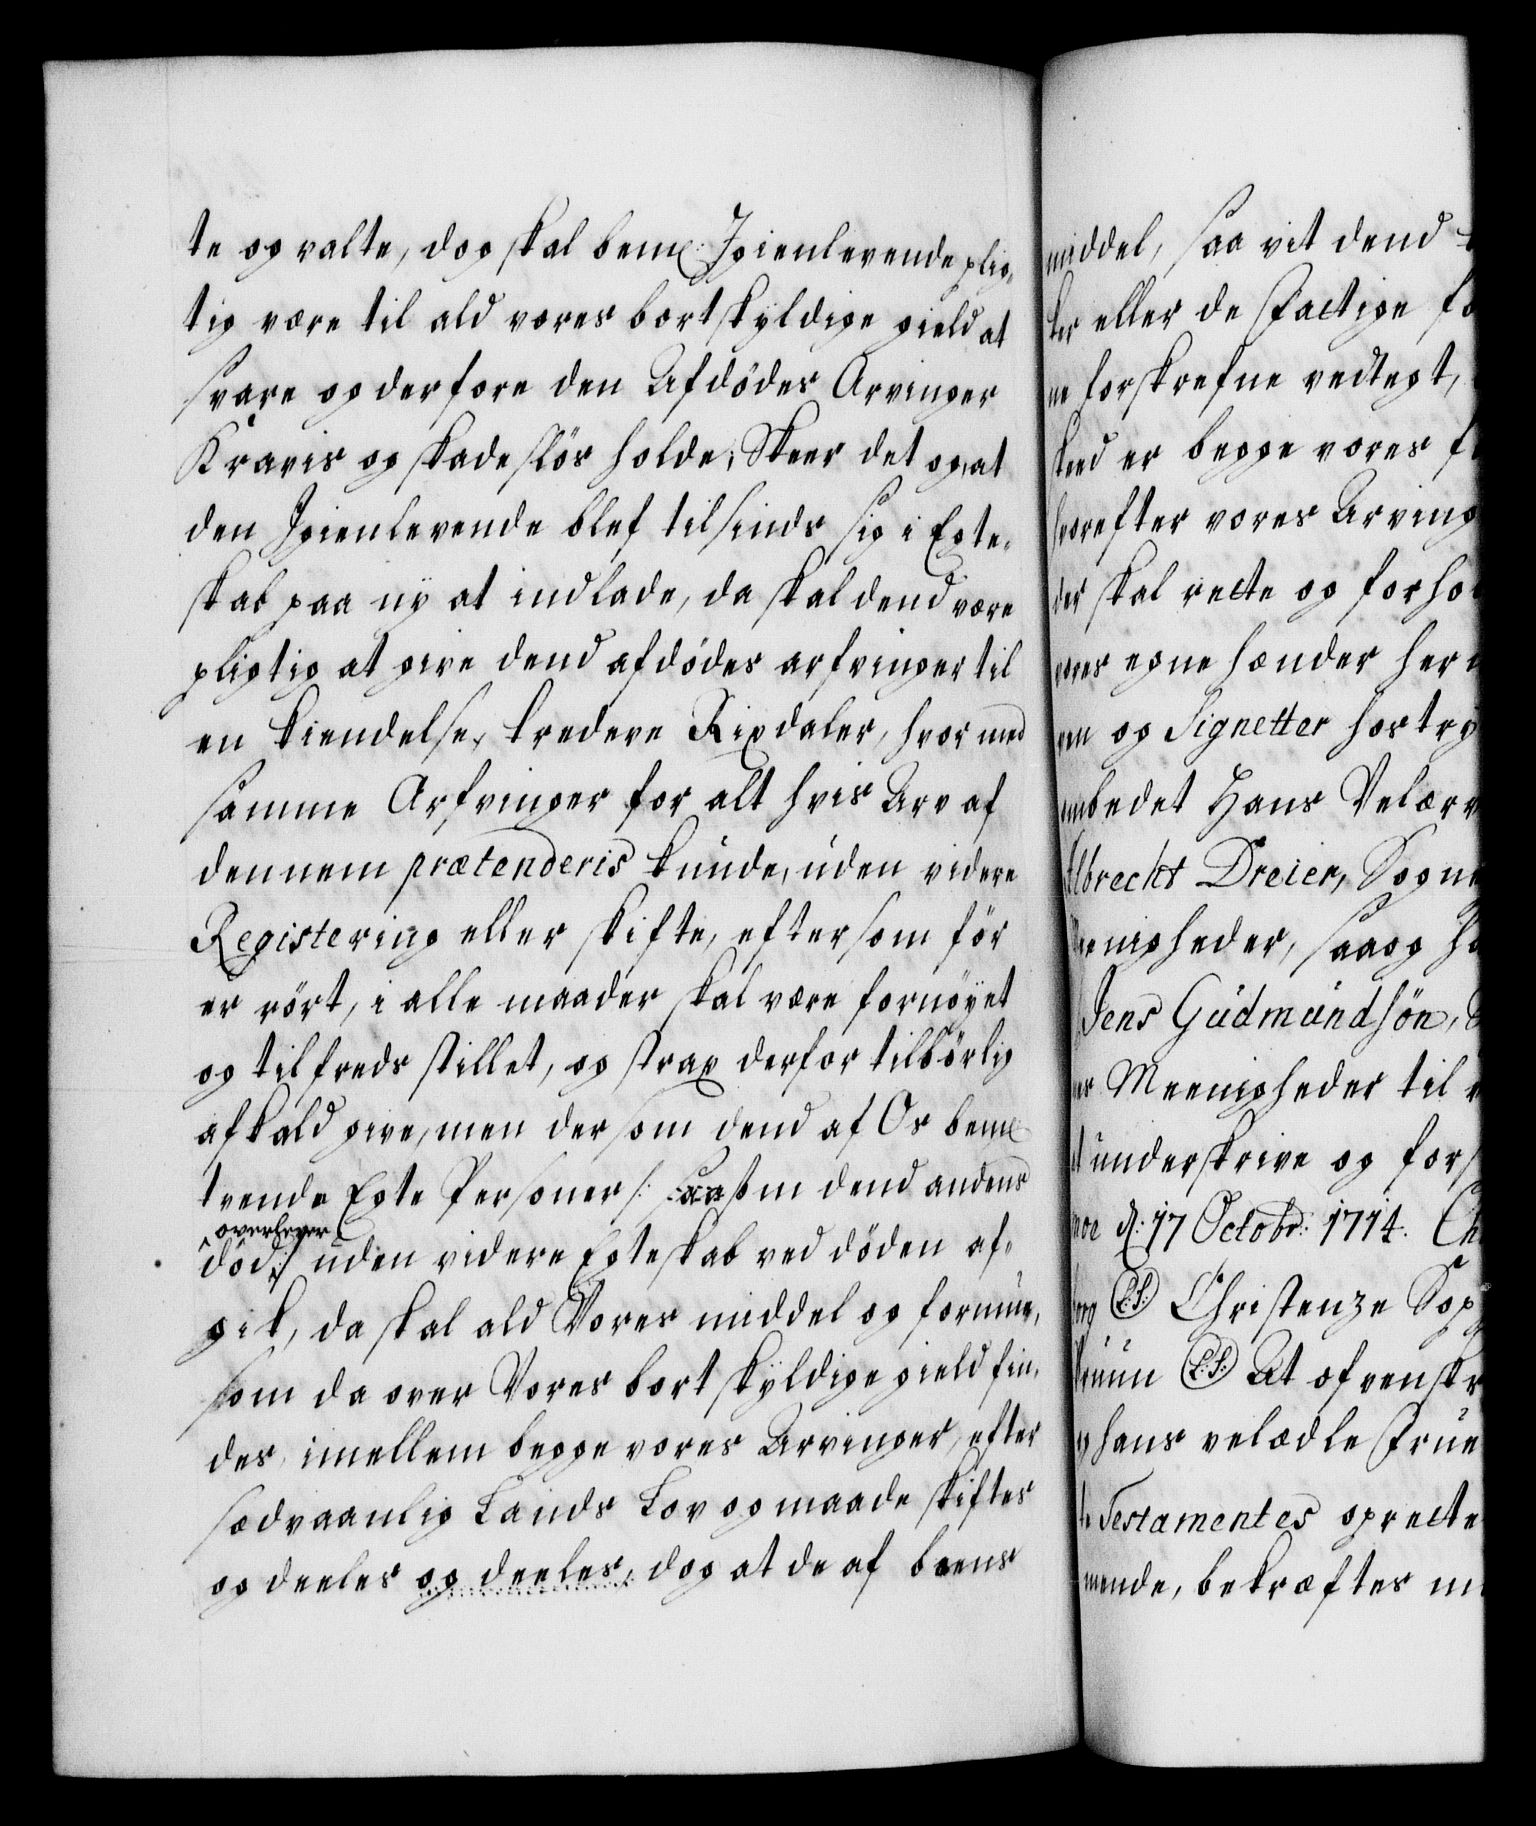 te og valte, dog skal bem: Igienlevende plig-
tig være til ald vores bortskyldige gield at
svare og derfore den Afdödes Arvinger
Kravis og skadeslös holde, Skeer det og, at
den Igienlevende blef tilsinds sig i Egte-
skab paa ny at indlade, da skal dend være
pligtig at give dend afdödes arfvinger til
en kiendelse, tredeve Rixdaler, hvor med
samme Arfvinger for alt hvis Arv af
dennem prætenderis kunde, uden videre
Registering eller skifte, eftersom för
er rört, i alle maader skal være fornöyet
og tilfreds stillet, og strax derfor tilbörlig
afkald give, men dersom dend af Os bem:
tvende Egte Personer /: som dend andens
overlever
död :/ uden videre Egteskab ved döden af-
gik, da skal ald Vores middel og formue,
som da over Vores bort skyldige gield fin-
des, imellem begge vores Arvinger, efter
sædvaanlig Lands Lov og maade skiftes
og deeles og deeles, dog at de af boens
middel, saa vit dend
ker eller de Fattige
ne forskrefne vedtegt,
skeed er begge vores
hvorefter vores Arving
der skal rette og forho
vores egne hænder her
ven og Signetter hostry
ombedet Hans Velærv
Albrecht Dreier, Sogne
Meenigheder, saa og
Jens Gudmundsön,
Meenigheder til
at underskrive og fors
moe d: 17 Octobr: 1714. Ch
L.S. Christenze Sop
L.S. At ofvenskr
hans velædle Frue
Testamentes oprette
mende, bekræftes